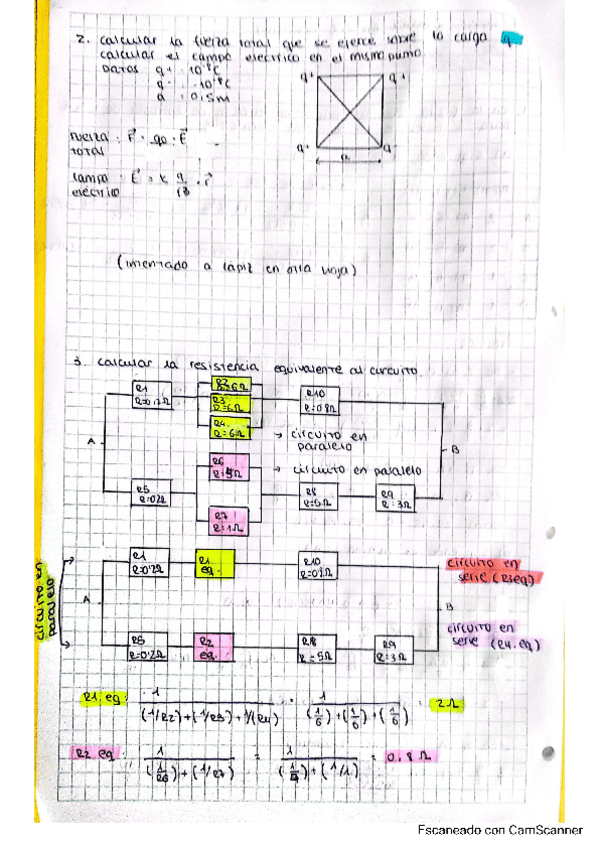 2. calcular la fuerza total que se ejerce sobre la carga q-.
calcular el campo eléctrico en el mismo punto
Datos q+ 10⁻⁸C
q- -10⁻⁸C
a = 0,5m
q+ q+
q+ q-
a
Fuerza total : F = q0 · E
campo eléctrico : E = K q/r3 · r
(intentado a lápiz en otra hoja)
3. calcular la resistencia equivalente al circuito.
R1
R2
R=6Ω
R3
R=6Ω
R4
R=6Ω
R10
R=0,8Ω
→ circuito en paralelo
A
B
R6
R=5Ω
→ circuito en paralelo
R5
R=0,2Ω
R7
R=1Ω
R8
R=5Ω
R9
R=3Ω
circuito en paralelo
R1
R=0,2Ω
R1 eq.
R10
circuito en serie (R3eq)
A
B
circuito en serie (R4.eq)
R5
R=0,2Ω
R2 eq.
R8
R=5Ω
R9
R=3Ω
R1.eq: 1/((1/R2)+(1/R3)+1/(R4)) = 1/((1/6)+(1/6)+(1/6)) = 2Ω
R2 eq 1/((1/R6)+(1/R7)) = = 0.8Ω
Escaneado con CamScanner